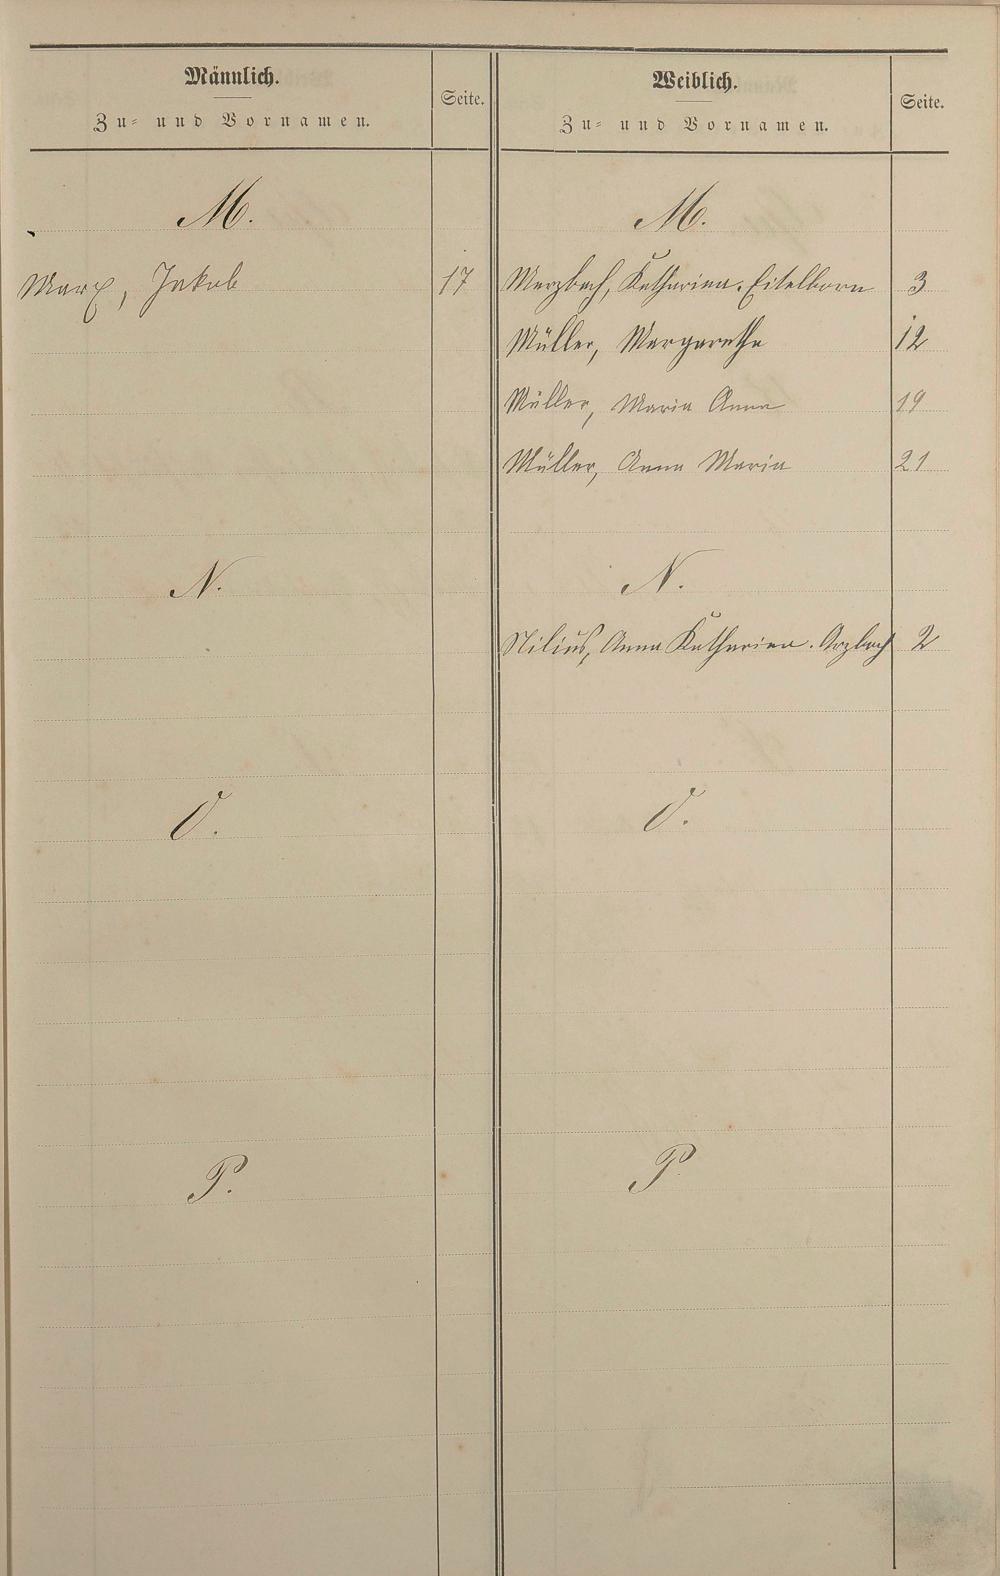 Männlich.
Zu- und Vornamen.
Seite.
M.
Marx, Jakob 17
N.
O.
P.
Weiblich.
Zu- und Vornamen.
Seite.
M.
Merzbach, Katharina. Eitelborn 3
Müller, Margarethe 12
Müller, Maria Anna 19
Müller, Anna Maria 21
N.
Nilius, Anna Katharina. Arzbach 2
O.
P.